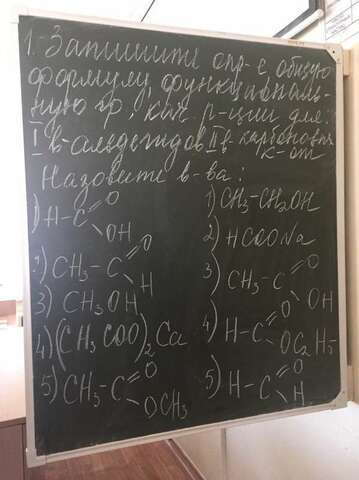 1. Запишите опр-е, общую
формулу, функциональ-
ную гр., кач. р-ции для:
I в-альдегидов II в-карбоновых
к-от
Назовите в-ва:
1) H-C=O
OH
2) CH3-C=O
H
3) CH3OH
4) (CH3COO)2Ca
5) CH3-C=O
OCH3
1) CH3-CH2OH
2) HCOONa
3) CH3-C=O
OH
4) H-C=O
OC2H5
5) H-C=O
H